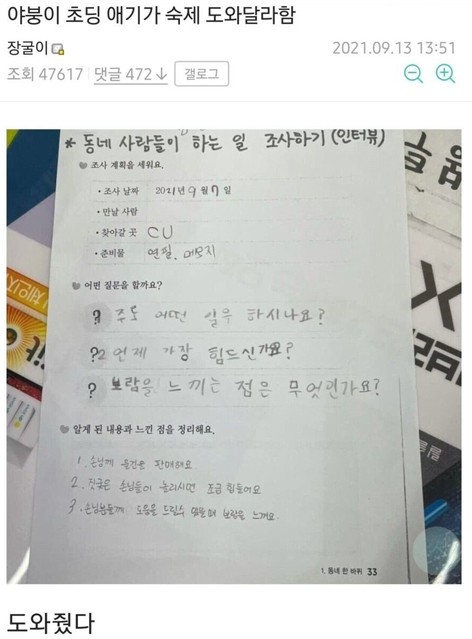 야붕이 초딩 애기가 숙제 도와달라함
장굴이
2021.09.13 13:51
조회 47617 | 댓글 472↓ 갤로그
* 동네 사람들이 하는 일 조사하기 (인터뷰)
조사 계획을 세워요.
• 조사 날짜 2021년 9월 7일
• 만날 사람
• 찾아갈 곳 CU
• 준비물 연필, 메모지
어떤 질문을 할까요?
? 주로 어떤 일을 하시나요?
?2 언제 가장 힘드신가요?
? 보람을 느끼는 점은 무엇인가요?
알게 된 내용과 느낀 점을 정리해요.
1. 손님께 물건을 판매해요
2. 짓궂은 손님들이 놀리시면 조금 힘들어요
3. 손님분들께 도움을 드릴수 있을때 보람을 느껴요.
1. 동네 한 바퀴 33
도와줬다